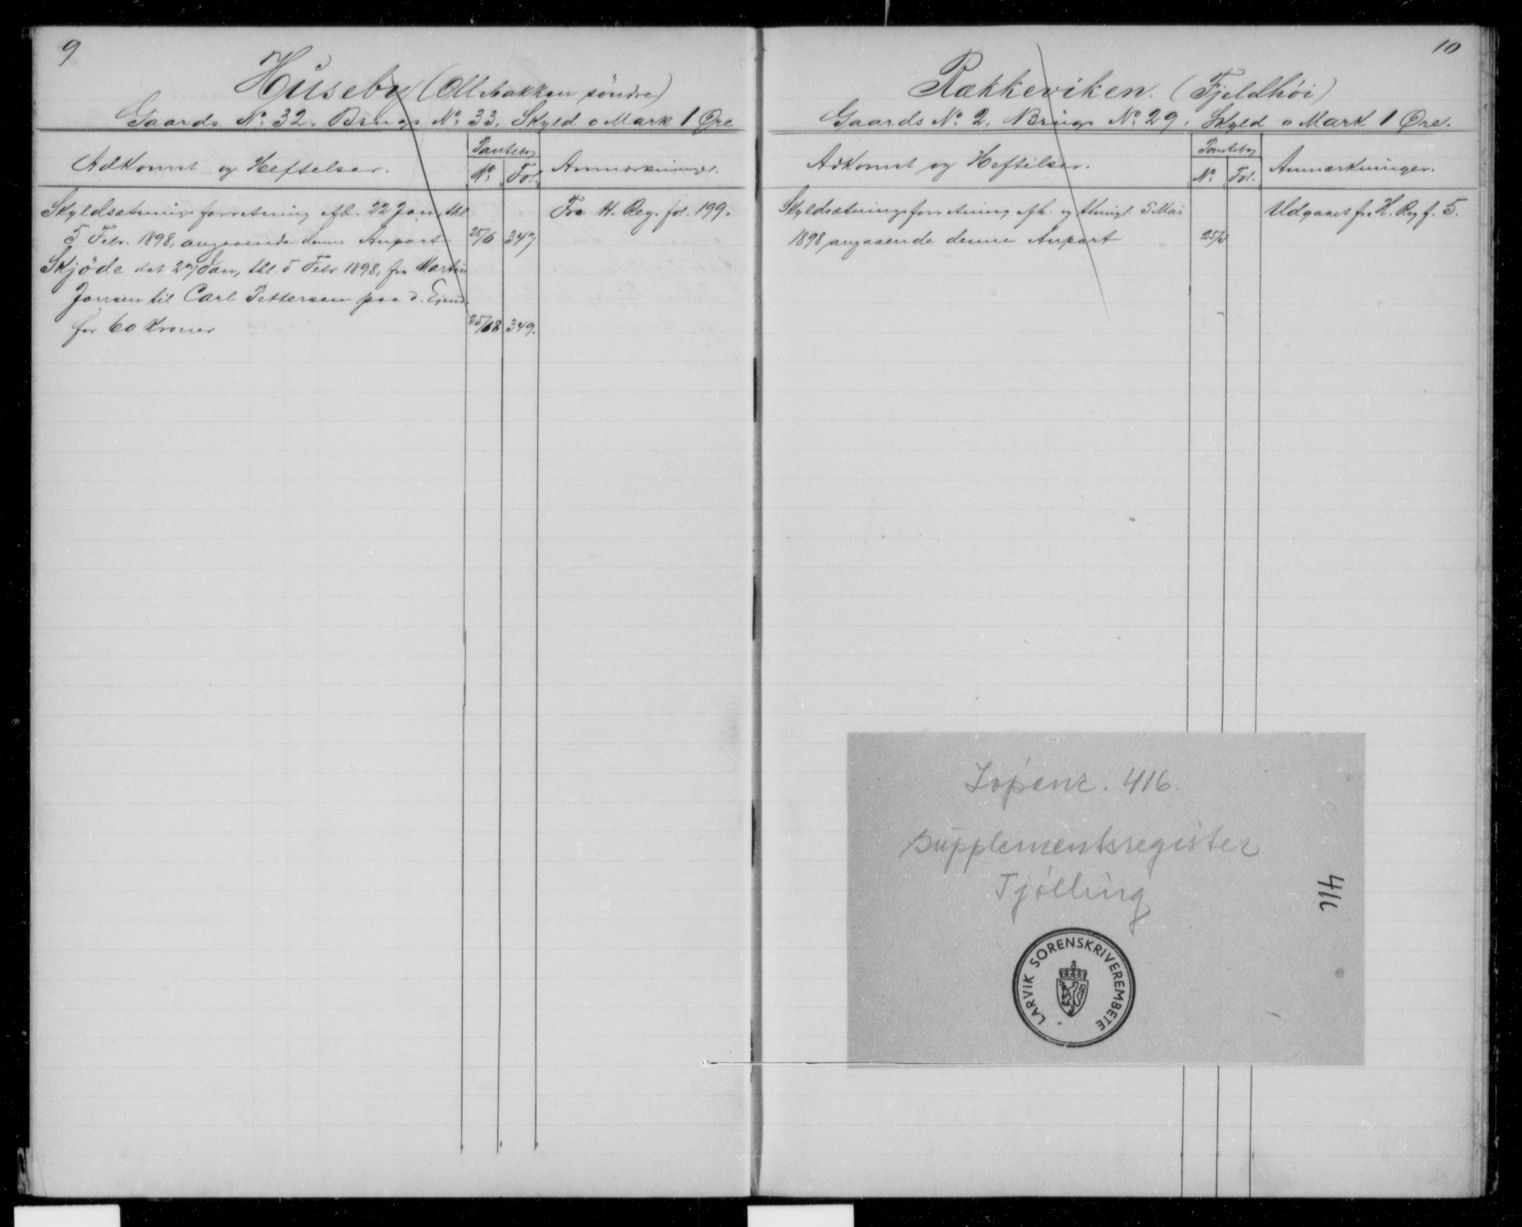 9
Huseby (Ollebakken søndre)
Gaards No. 32. Brugs No. 33. Skyld 0 Mark 1 Øre
Adkomst og Heftelser.
Pantebog
No. Fol.
Anmærkninger.
Skyldsætningsforretning afh. 22 Jan, thl
Fra H. Reg. fol. 199.
5 Febr. 1898, angaaende denne Anpart 25/6 347
Skjöde dat 27/Jan, thl. 5 Febr 1898, fra Martin
Jansen til Carl Pettersen paa d. Eiend.
for 60 Kroner 349.
10
Rækkeviken. (Fjeldhöi)
Gaards No. 2. Brugs No. 29. Skyld 0 Mark 1 Øre.
Adkomst og Heftelser.
Pantebog
No. Fol.
Anmærkninger.
Skyldsætningsforretning afh. og thingl. 5 Mai
Udgaaet fra H. Reg f. 5.
1898, angaaende denne Anpart
Løpenr. 416.
Supplementsregister
Tjølling
416
LARVIK SORENSKRIVEREMBETE